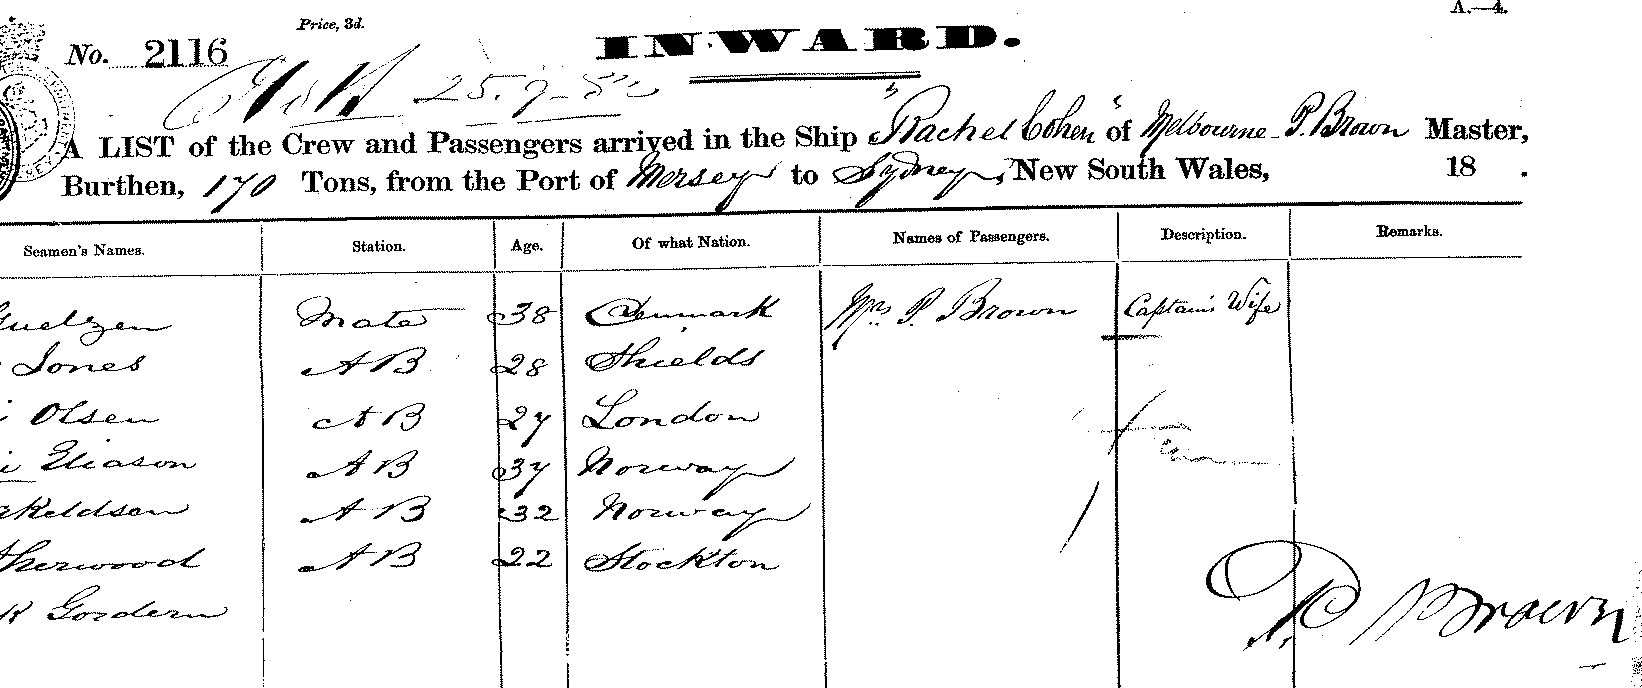 A.—4.
Price, 3d.
No. 2116
INWARD.
25.9-82
A LIST of the Crew and Passengers arrived in the Ship "Rachel Cohen" of Melbourne - P. Brown Master,
Burthen, 170 Tons, from the Port of Mersey to Sydney, New South Wales, 18 .
Seamen's Names. Station. Age. Of what Nation. Names of Passengers. Description. Remarks.
Mate 38 Denmark Mrs. P. Brown Captain's Wife
Jones AB 28 Shields
Olsen AB 27 London
Eliason AB 37 Norway
AB 32 Norway
Sherwood AB 22 Stockton
Gordern
P. Brown